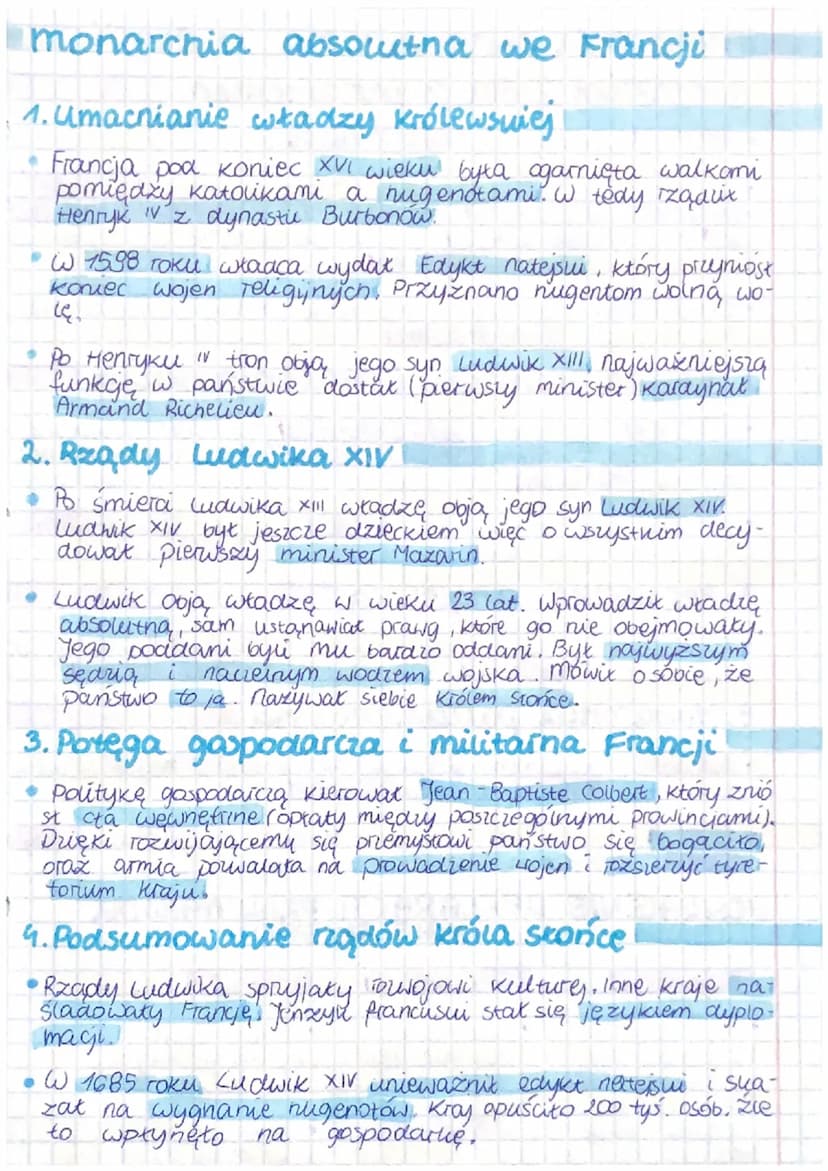 monarchia absolutna we Francji
1. Umacnianie władzy królewskiej
• Francja pod koniec XVI wieku była ogarnięta walkami
pomiędzy katolikami a hugenotami. W tedy rządził
Henryk IV z dynastii Burbonów.
• W 1598 roku władca wydał Edykt natejski, który przyniósł
koniec wojen religijnych. Przyznano hugentom wolną wo-
lę.
• Po Henryku IV tron objął jego syn Ludwik XIII, najważniejszą
funkcję w państwie dostał (pierwszy minister) Kardynał
Armand Richelieu.
2. Rządy Ludwika XIV
• Po śmierci Ludwika XIII władzę objął jego syn Ludwik XIV.
Ludwik XIV był jeszcze dzieckiem więc o wszystkim decy-
dował pierwszy minister Mazarin.
• Ludwik objął władzę w wieku 23 lat. Wprowadził władzę
absolutną, sam ustanawiał prawa, które go nie obejmowały.
Jego poddani byli mu bardzo oddani. Był najwyższym
sędzią i naczelnym wodzem wojska. Mówił o sobie, że
państwo to ja. Nazywał siebie Królem Słońce.
3. Potęga gospodarcza i militarna Francji
• Polityką gospodarczą kierował Jean-Baptiste Colbert, który znió
sł cła wewnętrzne (opłaty między poszczególnymi prowincjami).
Dzięki rozwijającemu się przemysłowi państwo się bogaciło,
oraz armia pozwalała na prowadzenie wojen i rozszerzyć tyre-
torium kraju.
4. Podsumowanie rządów króla słońce
• Rządy Ludwika sprzyjały rozwojowi kulturej. Inne kraje na-
śladowały Francję. Język francuski stał się językiem dyplo-
macji.
• W 1685 roku Ludwik XIV unieważnił edykt natejski i ska-
zał na wygnanie hugenotów. Kraj opuściło 200 tyś. osób. Źle
to wpłynęło na gospodarkę.